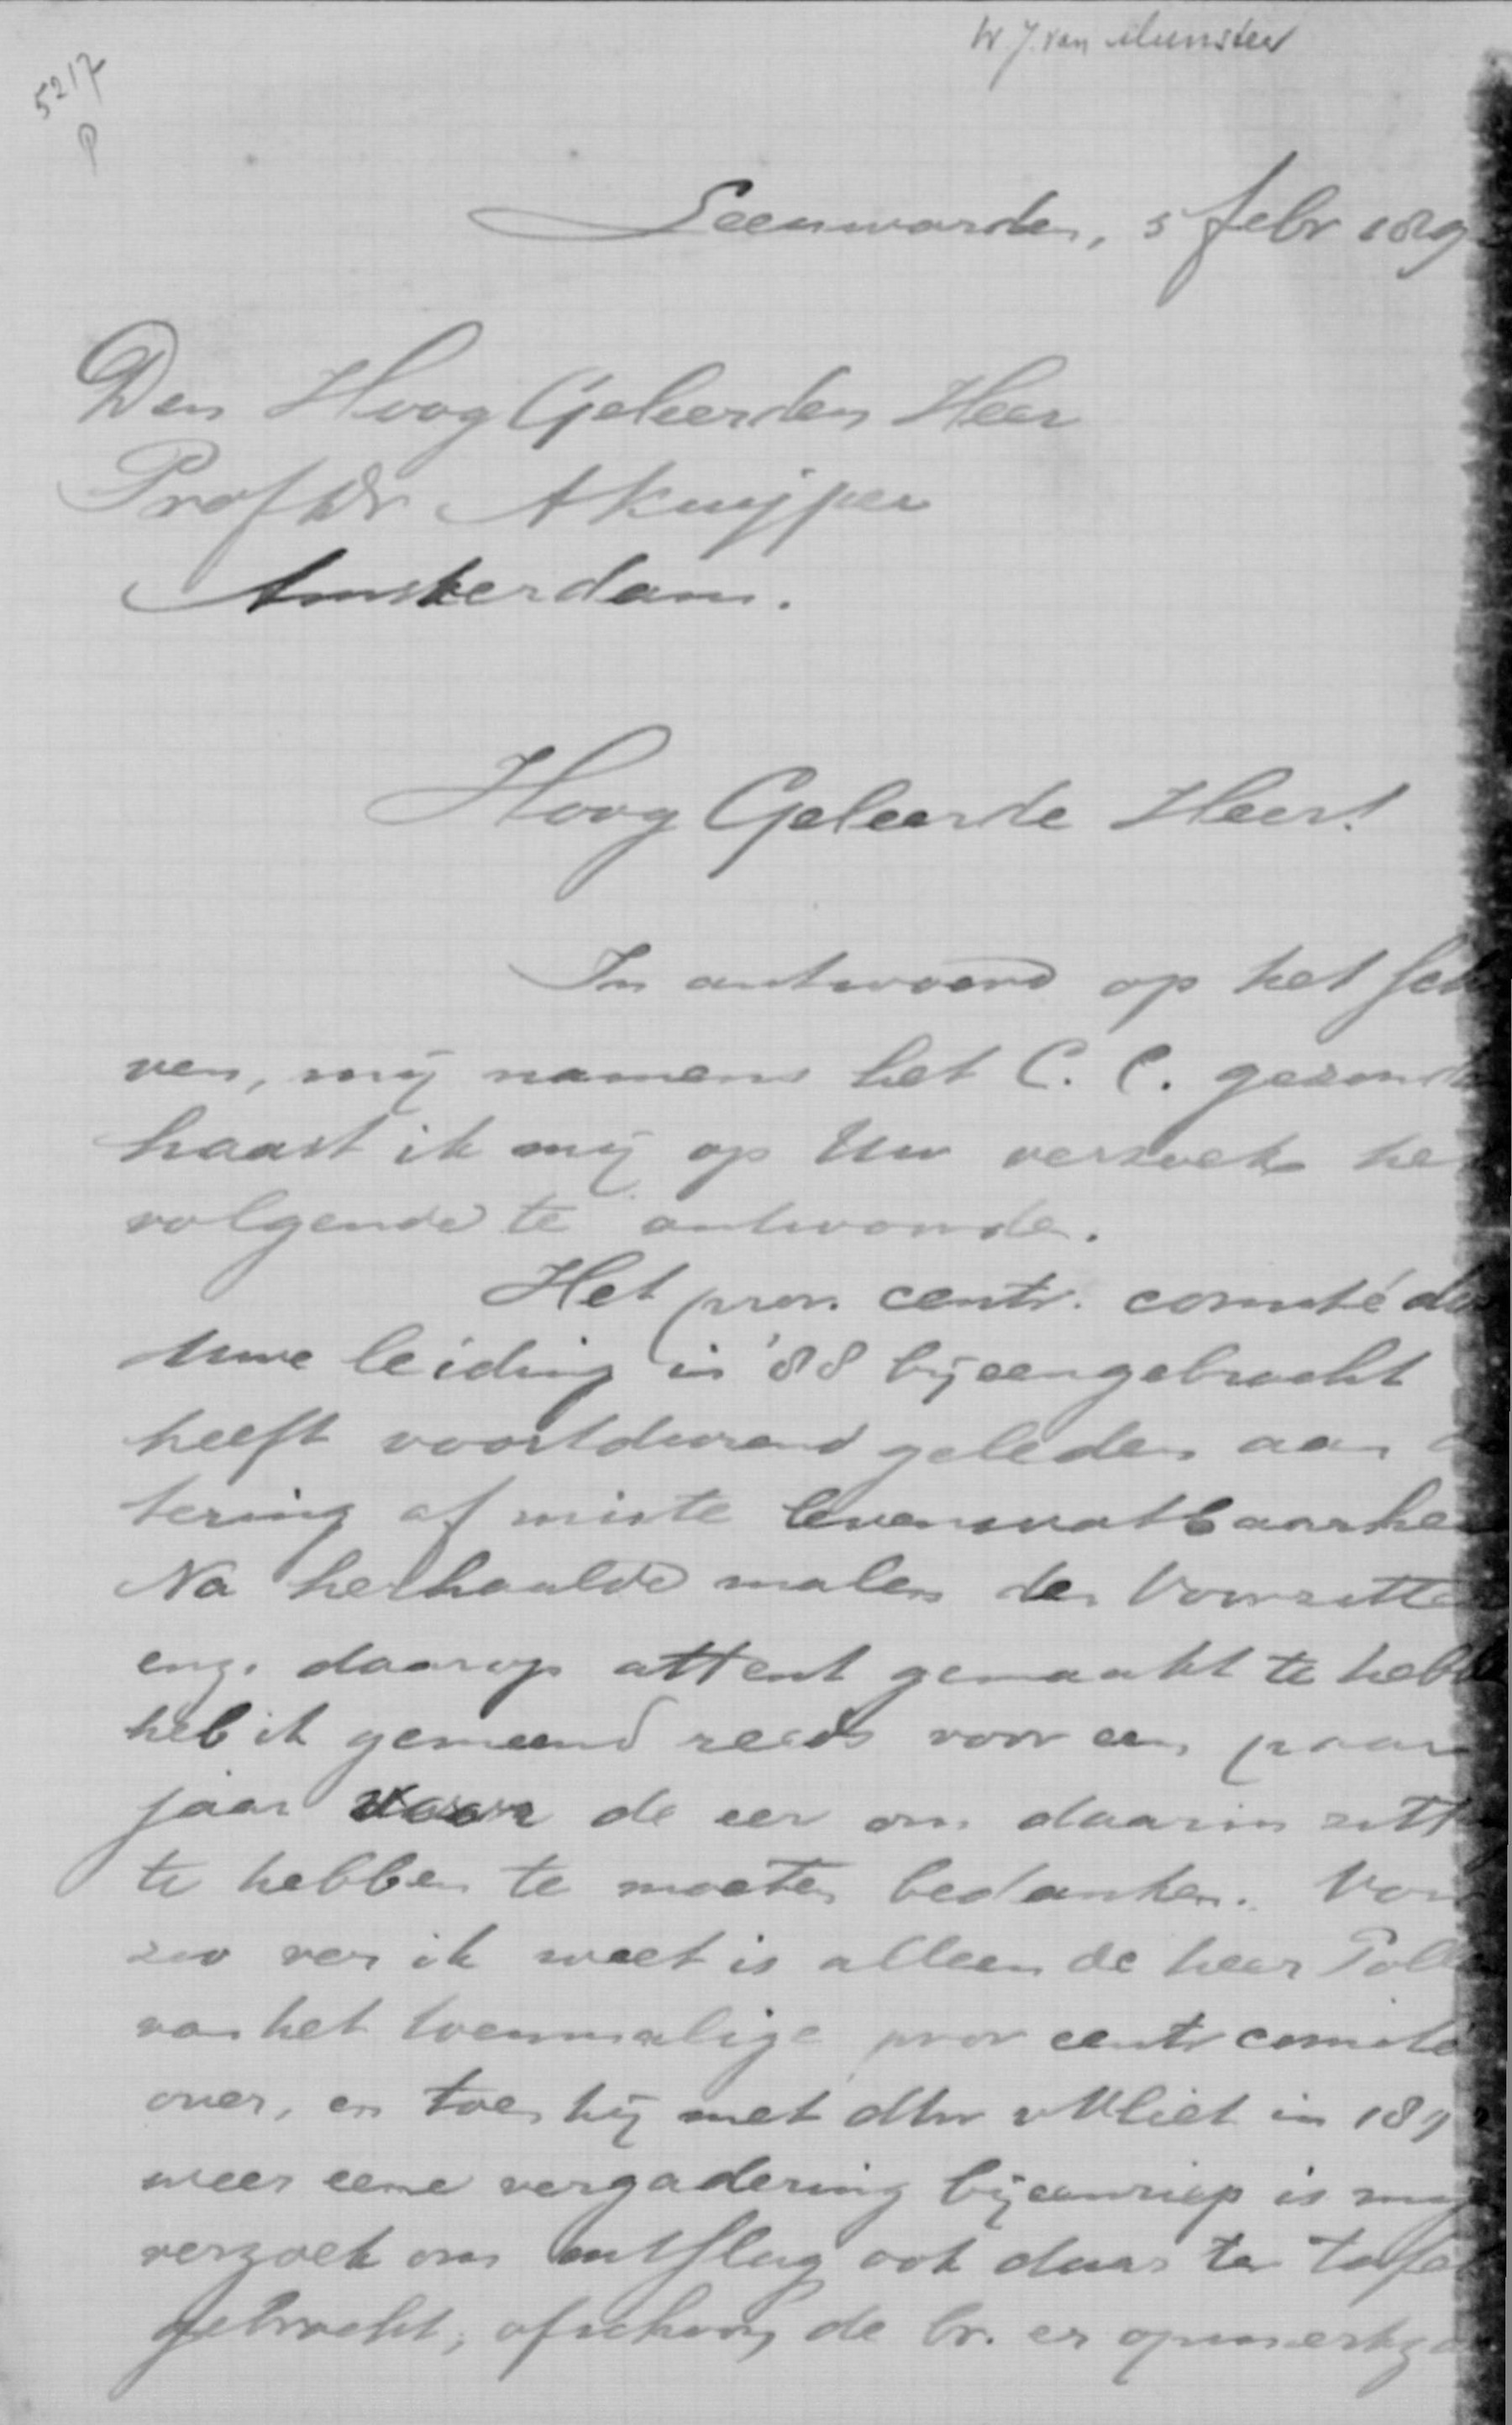 W. J. van Munster
5217
P
Leeuwarden, 5 febr 189
Den Hoog Geleerden Heer
Prof Dr A Kuijper
Amsterdam.
Hoog Geleerde Heer!
In antwoord op het sch
ven, mij namens het C. C. gezond
haast ik mij op Uw verzoek he
volgende te antwoorden.
Het prov. centr. comité do
Uwe leiding in '88 bijeengebracht
heeft voortdurend geleden aan
tering of miste levensvatbaarhe
Na herhaalde malen den Voorzitte
enz. daarop attent gemaakt te hebb
heb ik gemeend reeds voor een paar
jaar voor de eer om daarin zitt
te hebben te moeten bedanken. Voor
zoo ver ik weet is alleen de heer Poll
van het toenmalige prov centr comité
over, en toen hij met dhr v Vliet in 189
weer eene vergadering bijeenriep is mijn
verzoek om ontslag ook daar ter tafel
gebracht, ofschoon de br. er opmerkza